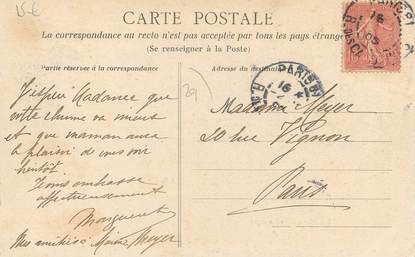 15 €
CARTE POSTALE
La correspondance au recto n'est pas acceptée par tous les pays étrangers
(Se renseigner à la Poste)
Partie réservée à la correspondance
Adresse du destinataire
PARIS
16
16
29
J'espère Madame que
votre rhume va mieux
et que maman aura
le plaisir de vous voir
bientôt.
Je vous embrasse
affectueusement
Marguerite
Mes amitiés à Meyer
Madame Meyer
20 rue Vignon
Paris